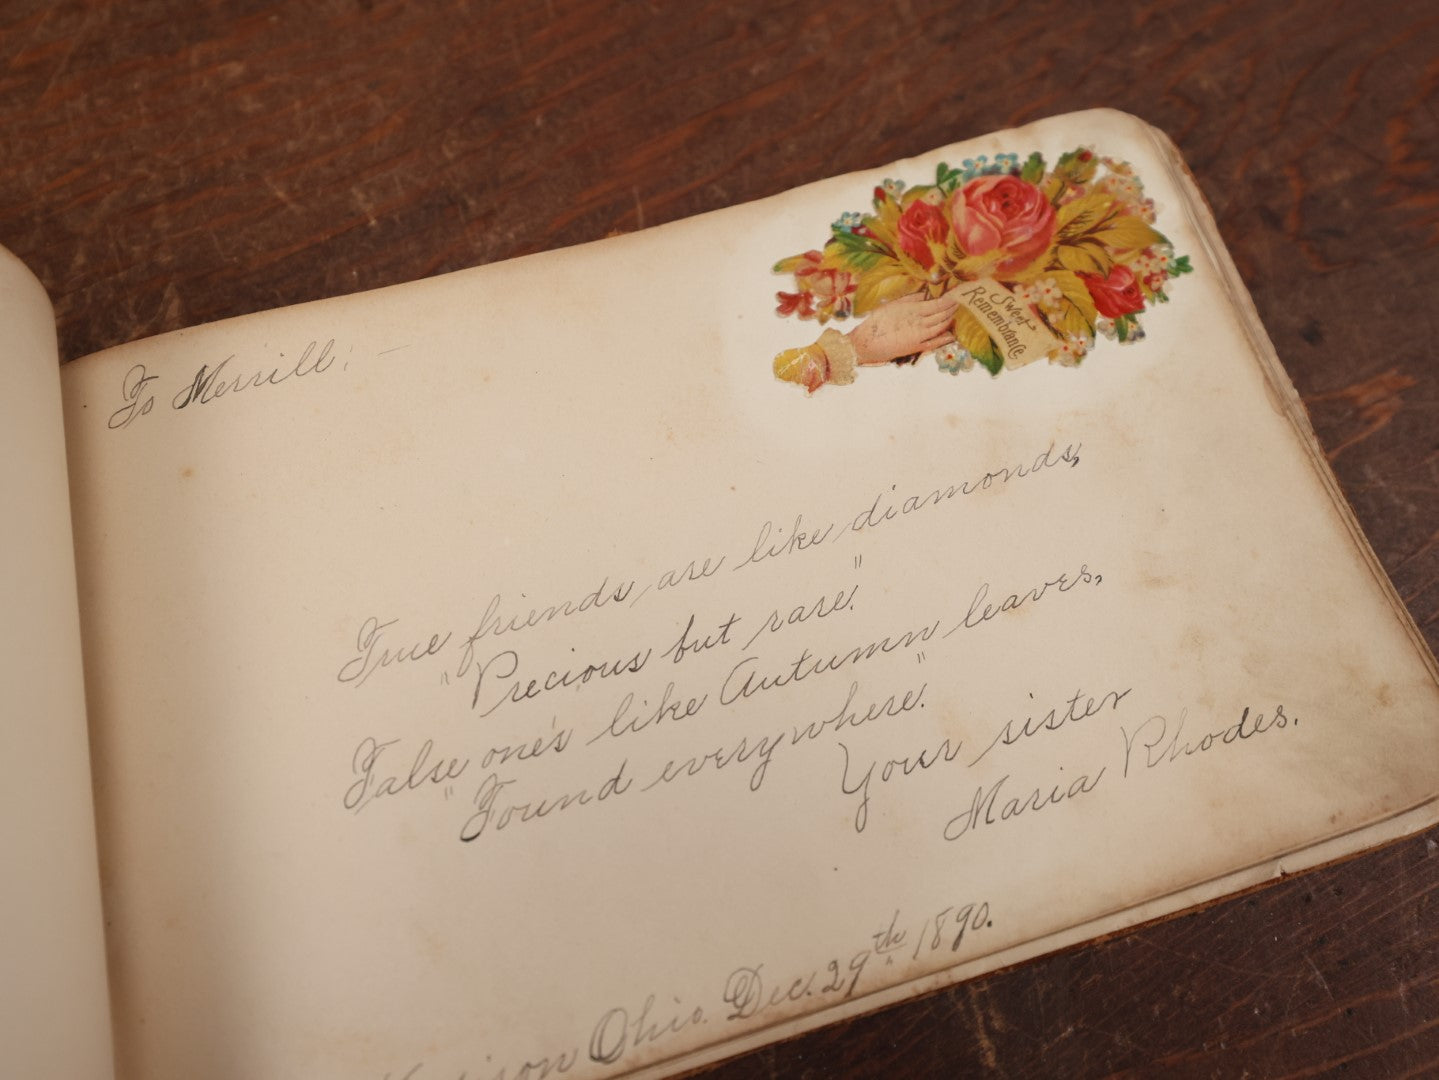 To Merrill: —
Sweet
Remembrance
True friends are like diamonds,
"Precious but rare."
False one's like Autumn leaves,
"Found everywhere."
Your sister
Maria Rhodes.
Ohio. Dec. 29th 1890.